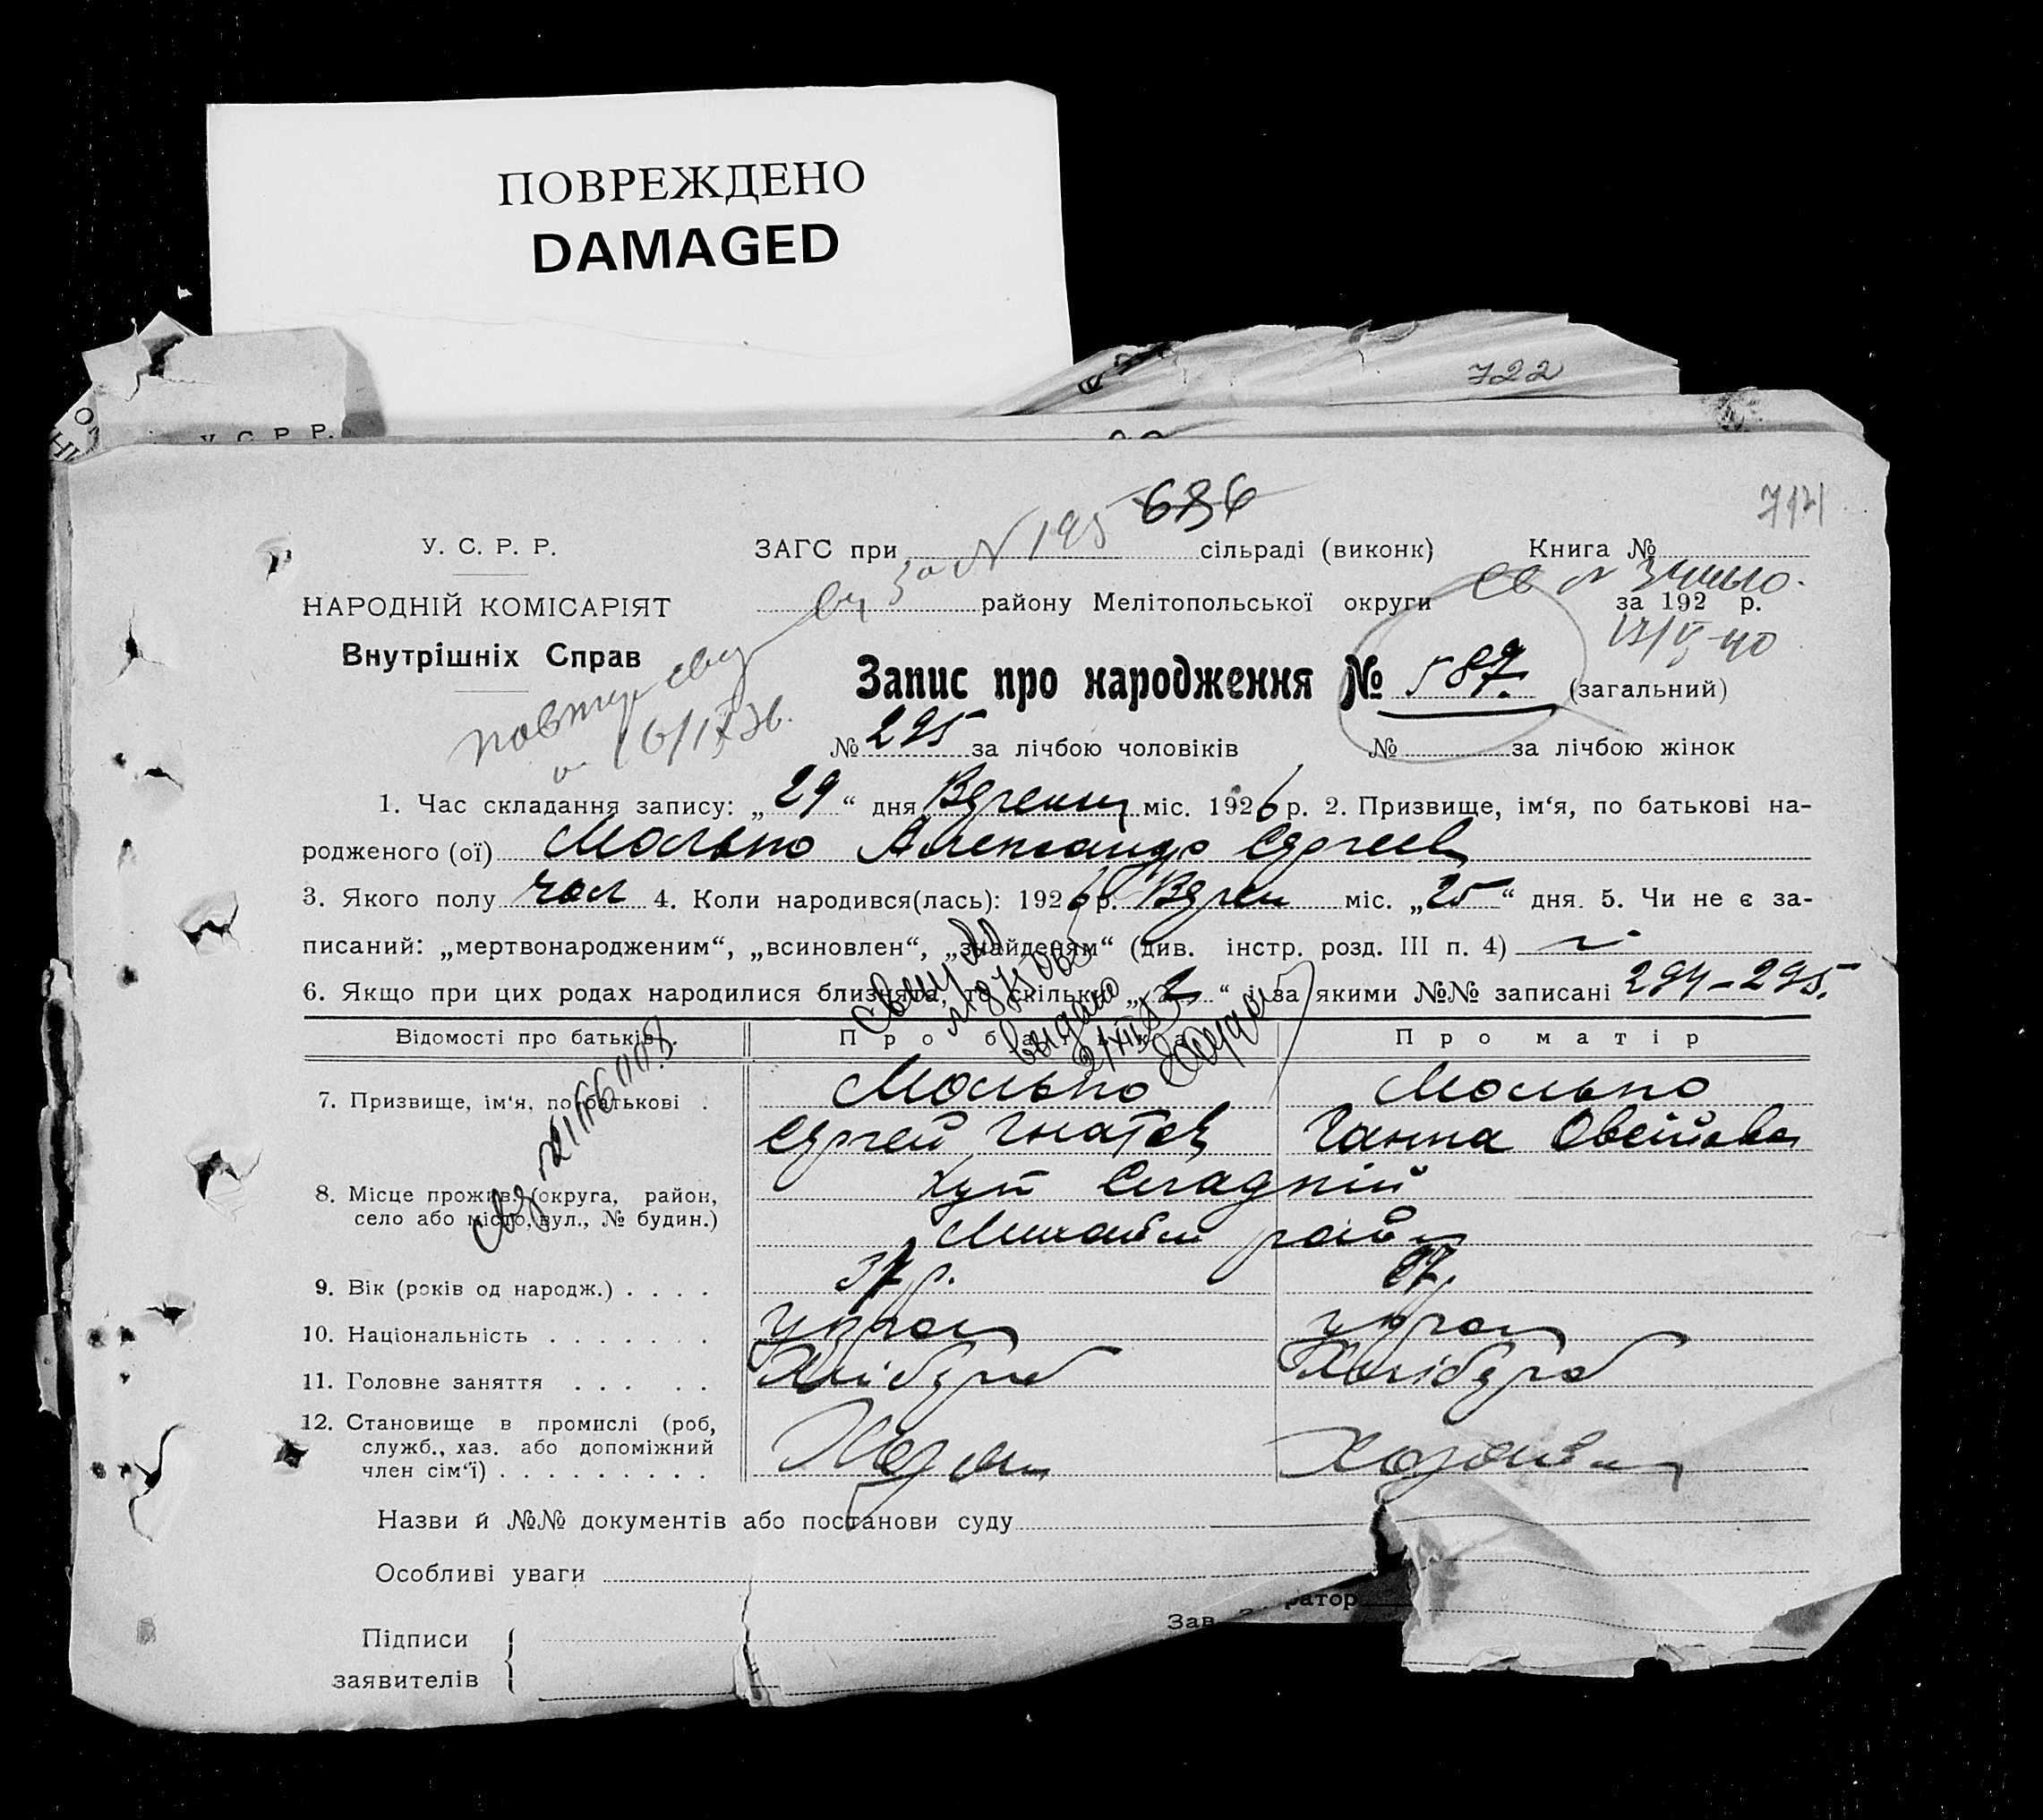 ПОВРЕЖДЕНО
DAMAGED
722
У. С. Р. Р.
686
714
У. С. Р. Р.
ЗАГС при N 195 сільраді (виконк) Книга №
НАРОДНІЙ КОМІСАРІЯТ
району Мелітопольської округи за 192 р.
Внутрішніх Справ
17/V-40
Запис про народження № 587. (загальний)
16/IX 36.
№ 295 за лічбою чоловіків № за лічбою жінок
1. Час складання запису: „29“ дня Верень міс. 1926 р. 2. Призвище, ім‘я, по батькові на-
родженого (ої) Молько Александр Сергеев
3. Якого полу чол 4. Коли народився(лась): 1926 р. Верен міс. „25“ дня. 5. Чи не є за-
писаний: „мертвонародженим“, „всиновлен“, „знайденям“ (див. інстр. розд. III п. 4)
6. Якщо при цих родах народилися близнята, то скільки „2“ і за якими №№ записані 294-295.
выдано
Відомості про батьків. Про батька Про матір
7. Призвище, ім‘я, по батькові . Молько Молько
Сергей Гнатов Ганна Овсійовна
8. Місце прожив. (округа, район, хут Сладкій
село або місто, вул., № будин.) район
9. Вік (років од народж.) . . . . 37 р. 37.
10. Національність . . . . . . . укра укра
11. Головне заняття . . . . . Хлібороб Хлібороб
12. Становище в промислі (роб,
служб., хаз. або допоміжний
член сім‘ї) . . . . . . . . . Хозяин Хозяйка
Назви й №№ документів або постанови суду
Особливі уваги
ратор
Зав.
Підписи
заявителів